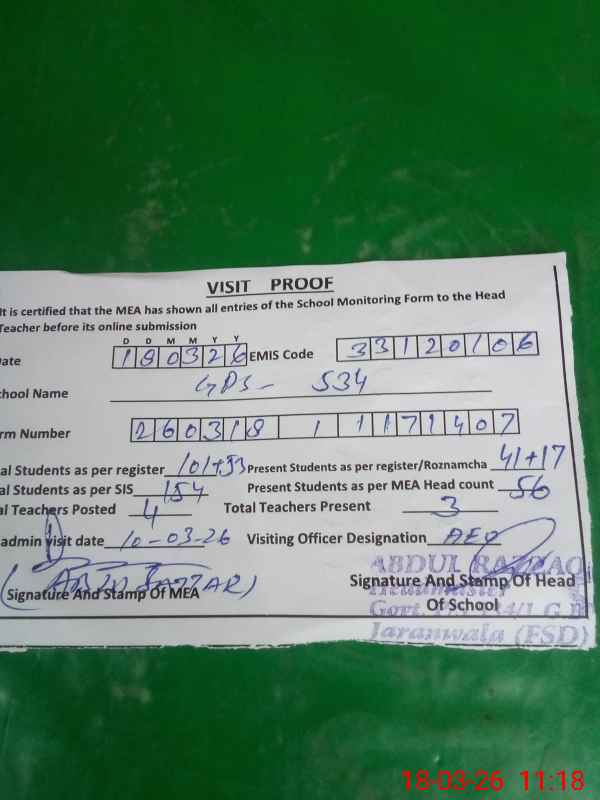 VISIT PROOF
It is certified that the MEA has shown all entries of the School Monitoring Form to the Head
Teacher before its online submission
D D M M Y Y
ate 180326 EMIS Code 33120106
chool Name GPS - 534
rm Number 260318 1 1171407
al Students as per register 101+53 Present Students as per register/Roznamcha 41+17
al Students as per SIS 154 Present Students as per MEA Head count 56
al Teachers Posted 4 Total Teachers Present 3
admin visit date 10-03-26 Visiting Officer Designation AEO
ABDUL RAZZAQ
Signature And Stamp Of MEA Signature And Stamp Of Head
Headmaster
Of School
Govt.
Jaranwala (FSD)
18-03-26 11:18